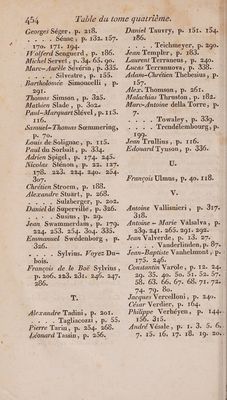 454 Table du tome quatrième.
Georgi Séger, p. 218.
. . . . Sénac, p. 132. 157.
170. 171. 194.
Wolferd Senguerd, p. 186.
Michel Servet, p. 34. 60. 90.
Marc-Aurèle Séverin, p. 335.
. . . . Silvestre, p. 155.
Bartholomée Simoncelli, p.
291.
Thomas Simson, p. 325.
Mathieu Slade, p. 302.
Paul-Marquart Slével, p. 115.
116.
Samuel-Thomas Sœmmering,
p. 70.
Louis de Solignac, p. 115.
Paul du Sorbait, p. 334.
Adrien Spigel, p. 174. 245.
Nicolas Sténon, p. 22. 127.
178. 223. 224. 240. 254.
307.
Chrétien Stroem, p. 188.
Alexandre Stuart, p. 268.
. . . . Sulzberger, p. 202.
Daniel de Superville, p. 326.
. . . . Susius, p. 29.
Jean Swammerdam, p. 179.
224. 253. 254. 304. 335.
Emmanuel Swédenborg, p.
326.
. . . . Sylvius. Voyez Du-
bois.
François de le Boë Sylvius,
p. 206. 223. 231. 246. 247.
286.
T.
Alexandre Tadini, p. 201.
. . . . Tagliacozzi, p. 55.
Pierre Tarin, p. 254. 268.
Léonard Tassin, p. 256.
Daniel Tauvry, p. 151. 154.
186.
. . . . Teichmeyer, p. 290.
Jean Templer, p. 183.
Laurent Terraneus, p. 240.
Lucas Terranova, p. 338.
Adam-Chrétien Thebesius, p.
157.
Alex. Thomson, p. 261.
Malachias Thruston, p. 182.
Marc-Antoine della Torre, p.
7.
. . . . Towaley, p. 339.
. . . . Trendélembourg, p.
199.
Jean Trullius, p. 116.
Edouard Tyson, p. 336.
U.
François Ulmus, p. 40. 118.
V.
Antoine Vallisnieri, p. 317.
318.
Antoine-Marie Valsalva, p.
239. 241. 265. 291. 292.
Jean Valverde, p. 13. 27.
. . . . Vanderlinden, p. 87.
Jean-Baptiste Vanhelmont, p.
175. 246.
Constantin Varole, p. 12. 24.
29. 35. 40. 50. 51. 52. 57.
58. 63. 66. 67. 68. 71. 72.
74. 79. 80.
Jacques Vercelloni, p. 240.
César Verdier, p. 164.
Philippe Verhéyen, p. 144.
156. 315.
André Vésale, p. 1. 3. 5. 6.
7. 15. 16. 17. 18. 19. 20.